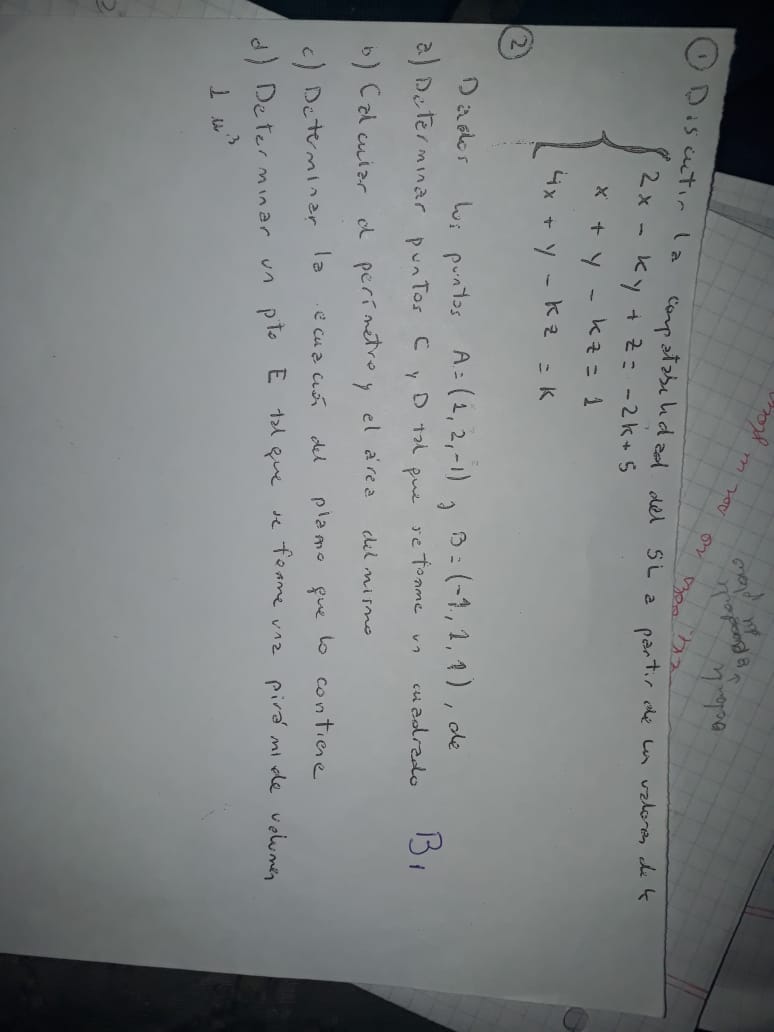 ① Discutir la compatibilidad del SL a partir de los valores de k
2x - ky + z = -2k+5
x + y - kz = 1
4x + y - kz = k
②
Dados los puntos A=(1,2,-1) y B=(-1,2,1), de
a) Determinar puntos C y D tal que se forme un cuadrado
b) Calcular el perímetro y el área del mismo
c) Determinar la ecuación del plano que lo contiene
d) Determinar un pto E tal que se forme una pirámide volumen
1 u³
B1